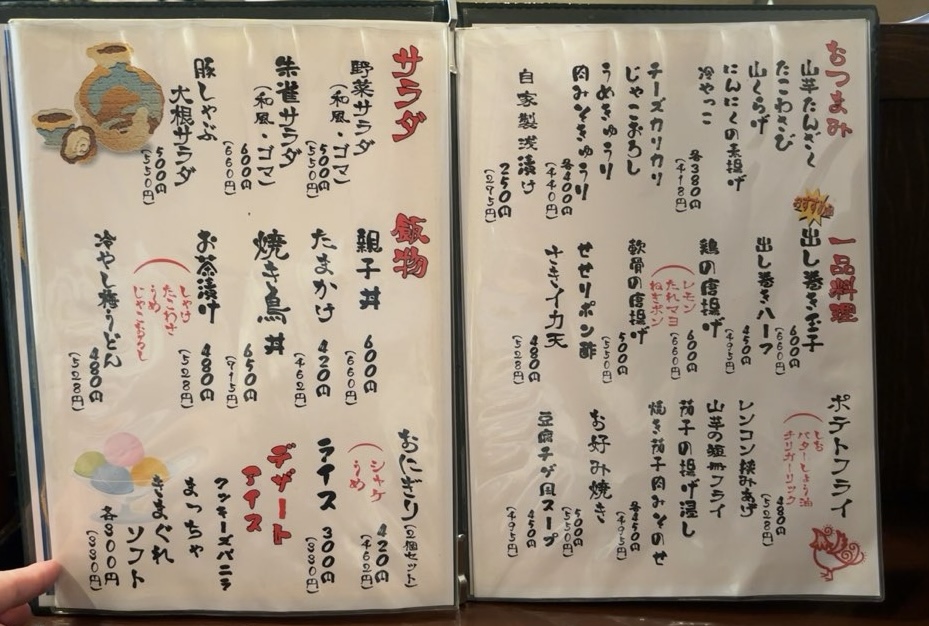 おつまみ
山芋たんざく
たこわさび
山くらげ
にんにくの素揚げ
冷やっこ
各380円
(418円)
チーズカリカリ
じゃこおろし
うめきゅうり
肉みそきゅうり
各400円
(440円)
自家製浅漬け
250円
(275円)
おすすめ
一品料理
出し巻き玉子
600円
(660円)
出し巻きハーフ
450円
(495円)
鶏の唐揚げ
レモン
たれマヨ
ねぎポン
600円
(660円)
軟骨の唐揚げ
500円
(550円)
せせりポン酢
さきイカ天
480円
(528円)
ポテトフライ
しお
バターしょう油
チリガーリック
480円
(528円)
レンコン挟みあげ
山芋の短冊フライ
茄子の揚げ浸し
焼き茄子肉みそのせ
各450円
(495円)
お好み焼き
500円
(550円)
豆腐チゲ風スープ
450円
(495円)
サラダ
野菜サラダ
(和風・ゴマ)
500円
(550円)
朱雀サラダ
(和風・ゴマ)
600円
(660円)
豚しゃぶ
大根サラダ
500円
(550円)
飯物
親子丼
600円
(660円)
たまかけ
420円
(462円)
焼き鳥丼
650円
(715円)
お茶漬け
しゃけ
たこわさ
うめ
じゃこおろし
480円
(528円)
冷やし梅うどん
480円
(528円)
おにぎり(2個セット)
シャケ
うめ
420円
(462円)
ライス
300円
(330円)
デザート
アイス
クッキーズバニラ
まっちゃ
きまぐれ
ソフト
各300円
(330円)